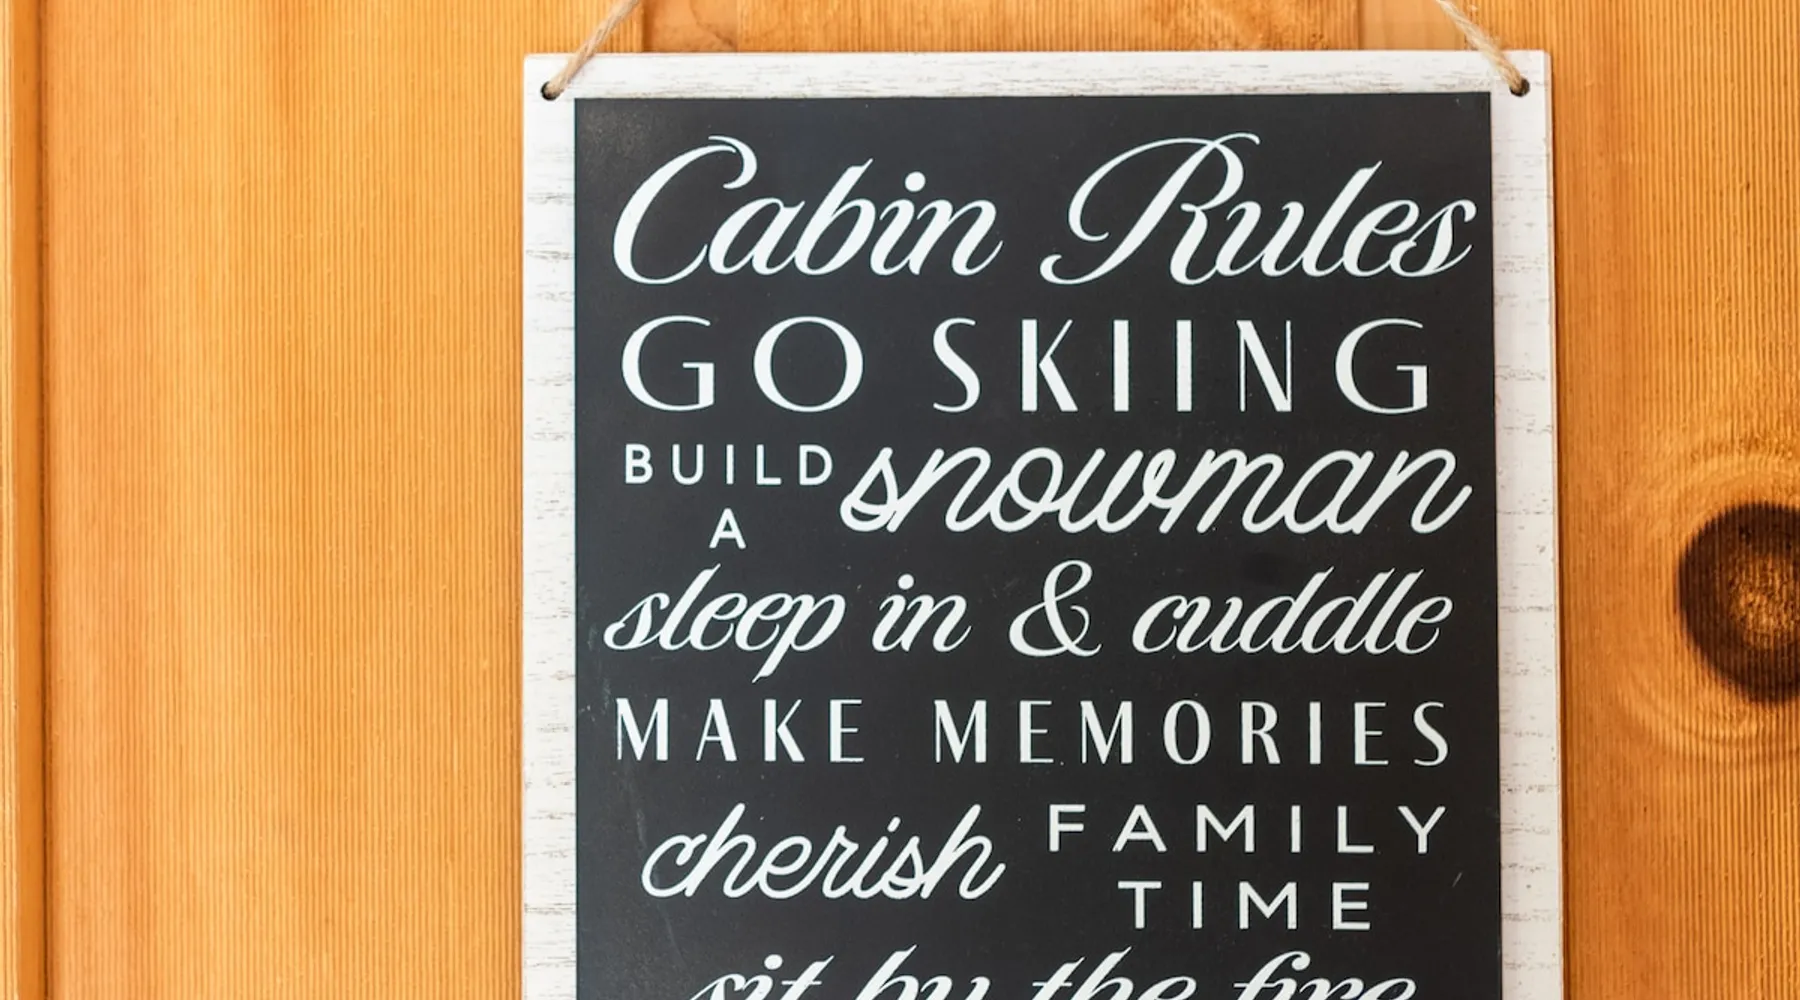 Cabin Rules
GO SKIING
BUILD A snowman
sleep in & cuddle
MAKE MEMORIES
cherish FAMILY TIME
sit by the fire